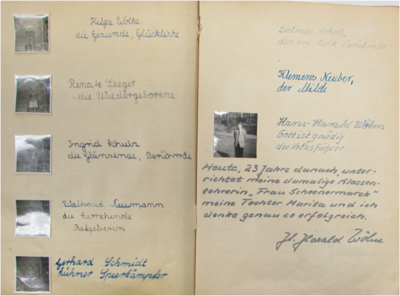 Helga Wolke
die Gesunde, Glückliche
Renate Seeger
die Wiedergeborene
Ingrid
die Glänzende, Berühmte
Waltraud Neumann
die herrschende
Ratgeberin
Gerhard Schmidt
kühner Speerkämpfer
der im Volk
Klemens Neuber,
der Milde
Hans-Harald Wöhn
Gott ist gnädig
Heute, 23 Jahre danach, unter-
richtet meine damalige Klassen-
lehrerin, Frau Schoenermarck"
meine Tochter Marita und ich
denke genau so erfolgreich.
H. Harald Wöhn